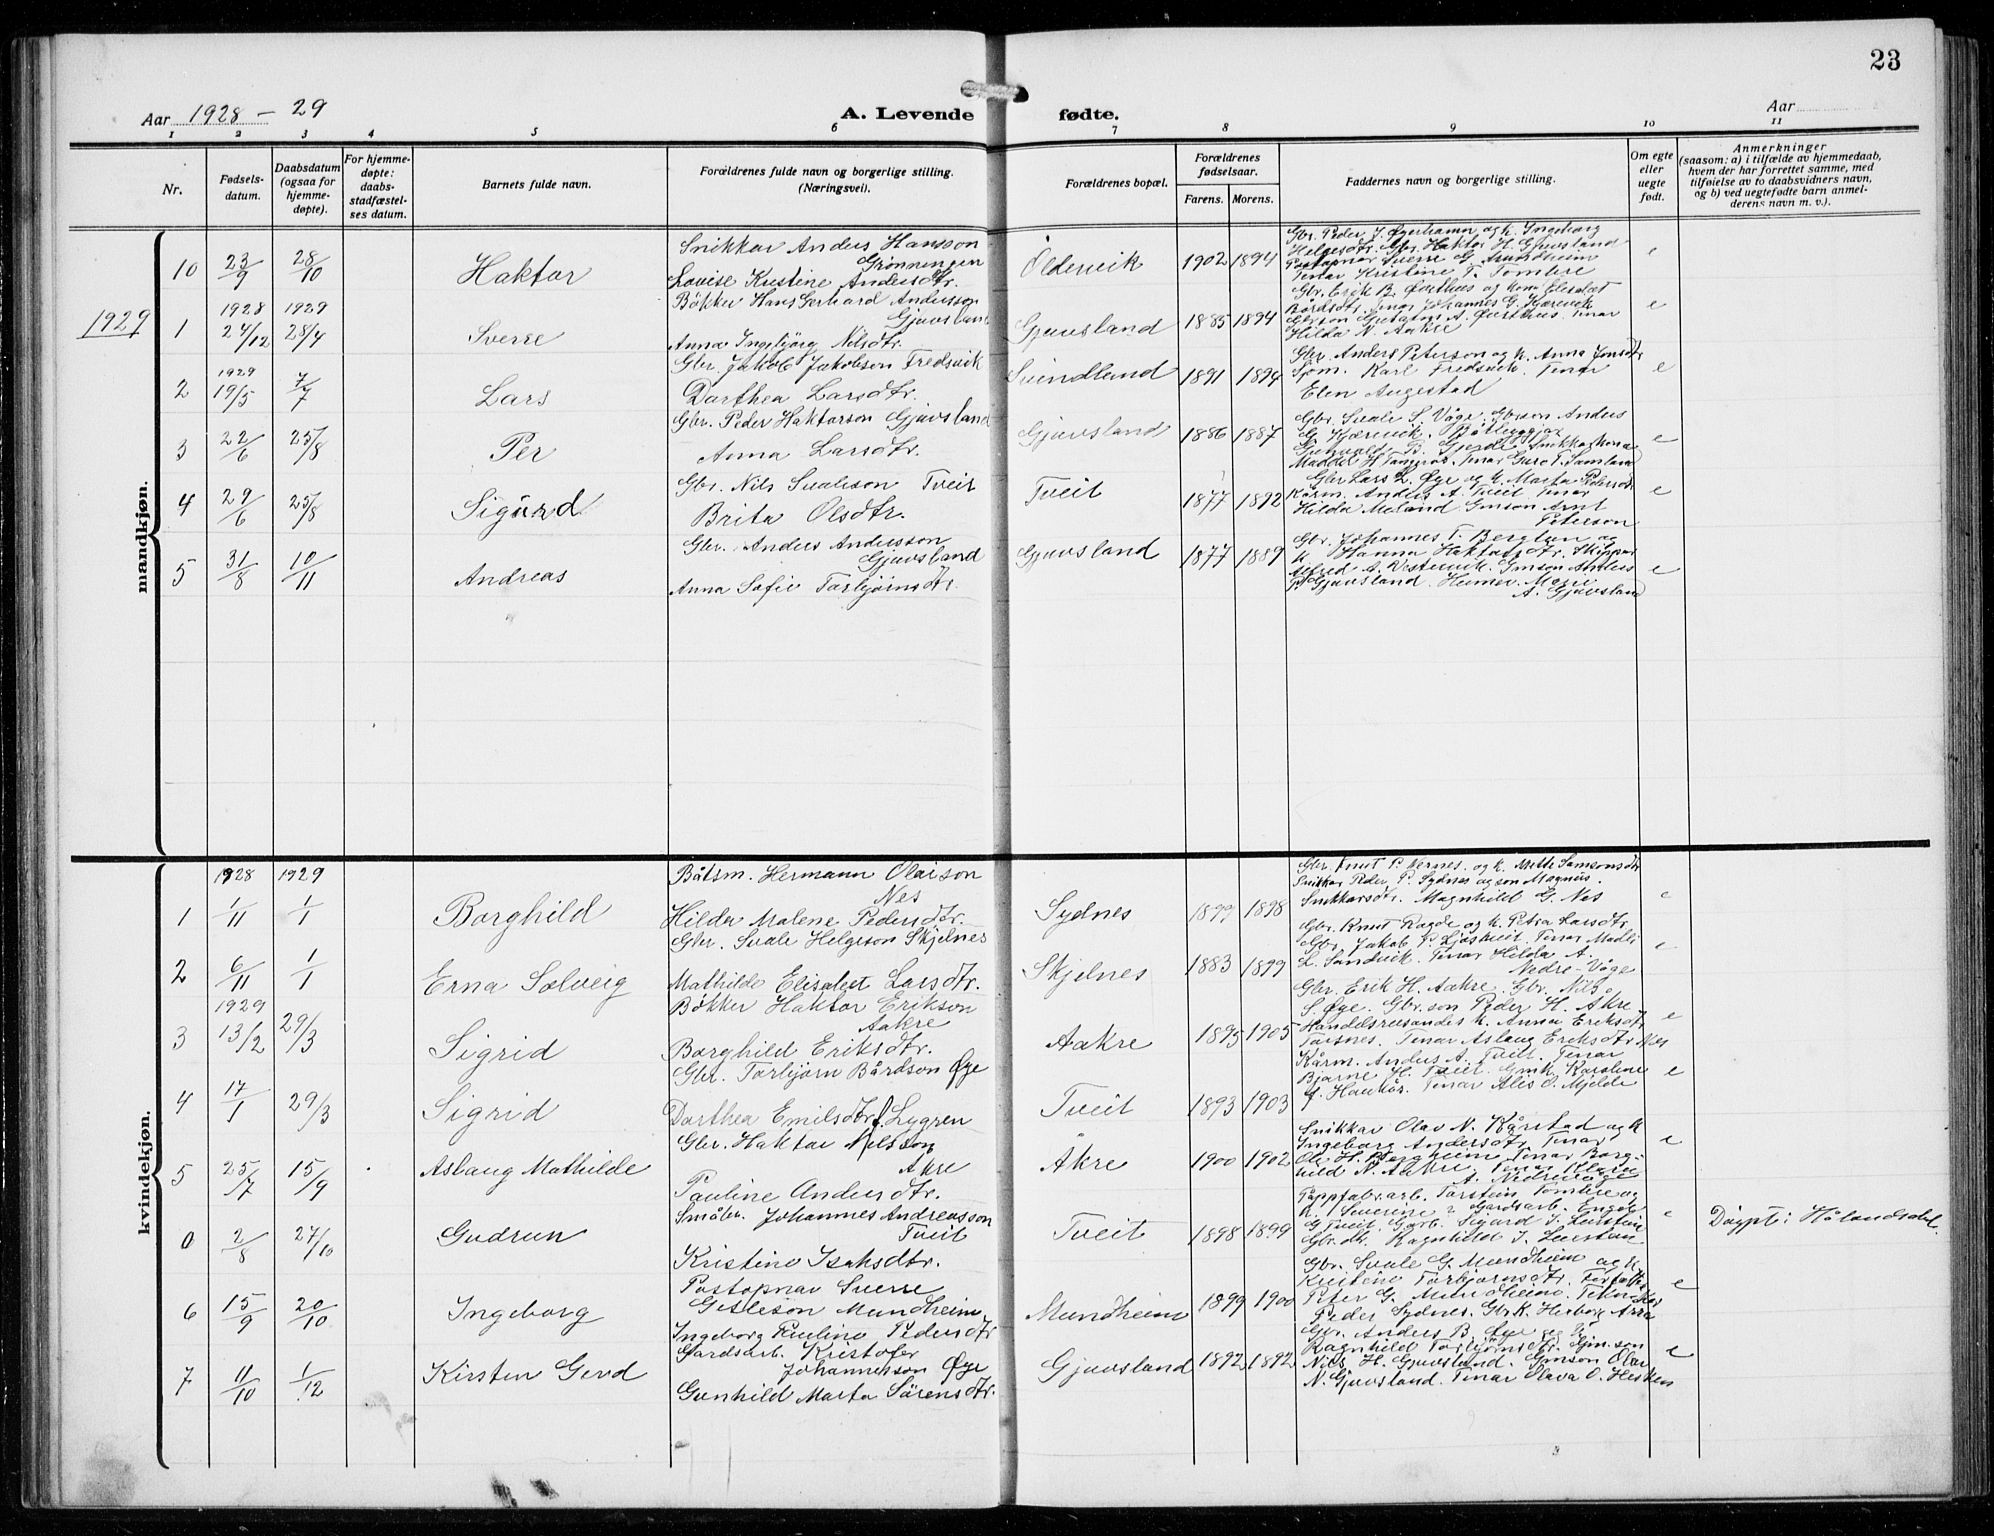 23
Aar 1928 - 29
A. Levende fødte.
Aar
1 2 3 4 5 6 7 8 9 10 11
Nr.
Fødsels-
datum.
Daabsdatum
(ogsaa for
hjemme-
døpte).
For hjemme-
døpte:
daabs-
stadfæstel-
ses datum.
Barnets fulde navn.
Forældrenes fulde navn og borgerlige stilling.
(Næringsvei).
Forældrenes bopæl.
Forældrenes
fødselsaar.
Farens. Morens.
Faddernes navn og borgerlige stilling.
Om egte
eller
uegte
født.
Anmerkninger
(saasom: a) i tilfælde av hjemmedaab,
hvem der har forrettet samme, med
tilføielse av to daabsvidners navn,
og b) ved uegtefødte barn anmel-
derens navn m. v.).
mandkjøn.
10 23/9 28/10 Haktor
Snikkar Anders Hansson
Grønningen
Louise Kristine Andersdtr.
Öldervik 1902 1894
Gbr. Peder J. Øyerhamn og k. Ingeborg
Helgesdtr. Gbr. Haktor H. Gjuvsland
Postopnar Sverre G. Mundheim
Tenar Kristine T. Tombre
e
1929
1928 1929
1 24/12 28/4 Sverre
Bøkker Hans Gerhard Andersson
Gjuvsland
Anna Ingebjørg Nilsdtr.
Gjuvsland 1885 1894
Gbr. Erik B. Øverhus og kona Elisabet
Bårdsdtr. Ings. Johannes G. Kærevik
Gbrson Gustav A. Øverhus. Tenar
Hilda N. Aakre
e
1929
2 19/5 7/7 Lars
Gbr. Jakob Jakobson Fredsvik
Dorthea Larsdtr.
Svindland 1891 1894
Gbr. Anders Peterson og k. Anna Jonsdtr
Sjøm. Karl Fredsvik. Tenar
Elen Augestad
e
3 22/6 25/8 Per
Gbr. Peder Haktorson Gjuvsland
Anna Larsdtr.
Gjuvsland 1886 1887
Gbr. Svale S. Våge. Gbrson Anders
G. Kærevik. Båtbyggjar
B. Gjerde Snikkarkona
Maddel H. Tenar Guro T. Samland
e
4 29/6 25/8 Sigurd
Gbr. Nils Svaleson Tveit
Brita Olsdtr.
Tveit 1877 1892
Gbr Lars L. Øye og k. Marta Pedersdtr
Kårm. Anders A. Tveit. Tenar
Hilda Meland Gmson Arnt
Peterson
e
5 31/8 10/11 Andreas
Gbr. Anders Andersson
Gjuvsland
Anna Sofie Torbjørnsdtr.
Gjuvsland 1877 1889
Gbr. Johannes T. Bergtun og
k. Hanna Haktorsdtr. Skippar
Alfred A. Vestervik. Gmson Anders
P. Gjuvsland. Heimev. Marie
A. Gjuvsland
e
kvindekjøn.
1928 1929
1 1/11 1/1 Borghild
Båtsm. Hermann Olaison
Nes
Hilda Malene Pedersdtr.
Sydnes 1899 1898
Gbr. Knut P. Nernes. og k. Mette Samsonsdtr
Snikkar Peder P. Sydnes og son Magnus.
Snikkarsdtr. Magnhild G. Nes
e
2 6/11 1/1 Erna Solveig
Gbr. Svale Helgeson Skjelnes
Mathilde Elisabet Larsdtr.
Skjelnes 1883 1899
Gbr. Knut Ragde og k. Petra Larsdtr
Gbr. Jakob P. Ljosheit. Tenar Madli
L. Sandvik. Tenar Hilda A.
Nedre-Våge
e
1929
3 13/2 29/3 Sigrid
Bøkker Haktor Erikson
Aakre
Borghild Eriksdtr.
Aakre 1895 1905
Gbr. Erik H. Aakre. Gbr. Nils
S. Øye. Gbr.son Peder H. Åkre
Handelsreisandes k. Anna Eriksdtr
Torsnes. Tenar Aslaug Eriksdtr Nes
e
4 17/1 29/3 Sigrid
Gbr. Torbjørn Bårdson Øye
Dorthea Emilsdtr f. Lygren
Tveit 1893 1903
Kårm. Anders A. Tveit. Tenar
Bjarne H. Tveit. Gmk. Karoline
J. Haukås. Tenar Alis O. Mjelde
e
5 25/7 15/9 Aslaug Mathilde
Gbr. Haktor Nilsson
Akre
Pauline Andersdtr.
Åkre 1900 1902
Snikkar Olav N. Kårstad og k
Ingeborg Andersdtr. Tenar
Ola H. Bergheim Tenar Borg-
hild N. Aakre. Tenar Klara
A. Nedrevåge
e
0 2/8 27/10 Gudrun
Småbr. Johannes Andreasson
Tveit
Kristine Isaksdtr.
Tveit 1898 1899
Pappfabr.arb. Torstein Tombre og
k. Severine Gardsarb. Engeb.
G Tveit. Garb. Sigurd J. Leirstein
Gbr. dtr. Ragnhild J. Leirstein
e
Døypt i Hålandsdal.
6 15/9 20/10 Ingeborg
Postopnar Sverre
Gitleson Mundheim
Ingeborg Pauline Pedersdtr
Mundheim 1899 1900
Gbr. Svale G. Mundheim og k
Kristine Torbjørnsdtr.
Peter G. Mundheim.
Peder Sydnes. Gbr.k. Herborg
e
7 11/10 1/12 Kirsten Gerd
Gardsarb. Kristofer
Johannesson Øye
Gunhild Marta Sørensdtr.
Gjuvsland 1892 1892
Gbr. Anders B. Øye og k.
Ragnhild Torbjørnsdtr. Gjm.son
Nils H. Gjuvsland. Gmson Olav
N. Gjuvsland. Tenar Olava O. Hesken
e